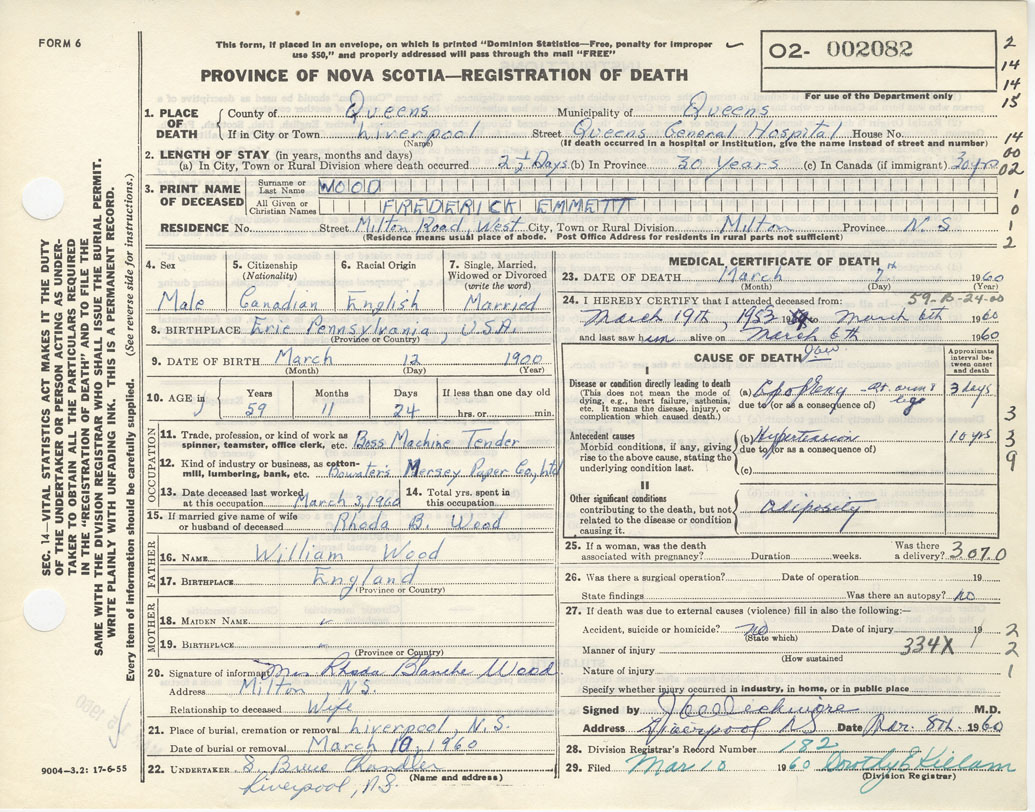 FORM 6
This form, if placed in an envelope, on which is printed "Dominion Statistics—Free, penalty for improper
use $50," and properly addressed will pass through the mail "FREE"
O2- 002082
For use of the Department only
PROVINCE OF NOVA SCOTIA—REGISTRATION OF DEATH
2
14
14
15
14
00
02
1
0
1
2
1. PLACE OF DEATH
County of Queens Municipality of Queens
If in City or Town Liverpool Street Queens General Hospital House No.
(Name) (If death occurred in a hospital or institution, give the name instead of street and number)
2. LENGTH OF STAY (in years, months and days)
(a) In City, Town or Rural Division where death occurred 2½ Days (b) In Province 30 Years (c) In Canada (if immigrant) 30 yrs
3. PRINT NAME OF DECEASED
Surname or Last Name WOOD
All Given or Christian Names FREDERICK EMMETT
RESIDENCE No. Street Milton Road, West City, Town or Rural Division Milton Province N.S.
(Residence means usual place of abode. Post Office Address for residents in rural parts not sufficient)
4. Sex
Male
5. Citizenship (Nationality)
Canadian
6. Racial Origin
English
7. Single, Married, Widowed or Divorced (write the word)
Married
8. BIRTHPLACE Erie Pennsylvania, U.S.A.
(Province or Country)
9. DATE OF BIRTH March 12 1900
(Month) (Day) (Year)
10. AGE in
Years 59
Months 11
Days 24
If less than one day old
hrs. or min.
OCCUPATION
11. Trade, profession, or kind of work as spinner, teamster, office clerk, etc. Boss Machine Tender
12. Kind of industry or business, as cotton-mill, lumbering, bank, etc. Bowaters Mersey Paper Co., Ltd
13. Date deceased last worked at this occupation March 3, 1960
14. Total yrs. spent in this occupation
15. If married give name of wife or husband of deceased Rhoda B. Wood
FATHER
16. NAME William Wood
17. BIRTHPLACE England
(Province or Country)
MOTHER
18. MAIDEN NAME
19. BIRTHPLACE
(Province or Country)
20. Signature of informant Mrs Rhoda Blanche Wood
Address Milton, N.S.
Relationship to deceased Wife
21. Place of burial, cremation or removal Liverpool, N.S.
Date of burial or removal March 10, 1960
22. UNDERTAKER S. Bruce Chandler
(Name and address)
Liverpool, N.S.
9004—3.2: 17-6-55
MEDICAL CERTIFICATE OF DEATH
23. DATE OF DEATH March 7th 1960
(Month) (Day) (Year)
59-B-24-00
24. I HEREBY CERTIFY that I attended deceased from:
March 19th, 1953 to March 6th 1960
and last saw him alive on March 6th 1960
CAUSE OF DEATH
Approximate interval between onset and death
I
Disease or condition directly leading to death
(This does not mean the mode of dying, e.g., heart failure, asthenia, etc. It means the disease, injury, or complication which caused death.)
(a) 3 days
due to (or as a consequence of)
Antecedent causes
Morbid conditions, if any, giving rise to the above cause, stating the underlying condition last.
(b) Hypertension 10 yrs
due to (or as a consequence of)
(c)
II
Other significant conditions
contributing to the death, but not related to the disease or condition causing it.
adiposity
3
3
9
25. If a woman, was the death associated with pregnancy? Duration weeks. Was there a delivery? 3070
26. Was there a surgical operation? Date of operation 19
State findings Was there an autopsy? no
27. If death was due to external causes (violence) fill in also the following:—
Accident, suicide or homicide? no Date of injury 19
(State which)
Manner of injury 334X
(How sustained)
Nature of injury
2
2
1
Specify whether injury occurred in industry, in home, or in public place
Signed by M.D.
Address Liverpool NS Date Mar. 8th 1960
28. Division Registrar's Record Number 182
29. Filed Mar 10 1960 Dorothy E Killam
(Division Registrar)
SEC. 14—VITAL STATISTICS ACT MAKES IT THE DUTY
OF THE UNDERTAKER OR PERSON ACTING AS UNDER-
TAKER TO OBTAIN ALL THE PARTICULARS REQUIRED
IN THE "REGISTRATION OF DEATH" AND TO FILE THE
SAME WITH THE DIVISION REGISTRAR WHO SHALL ISSUE THE BURIAL PERMIT.
WRITE PLAINLY WITH UNFADING INK. THIS IS A PERMANENT RECORD.
Every item of information should be carefully supplied. (See reverse side for instructions.)